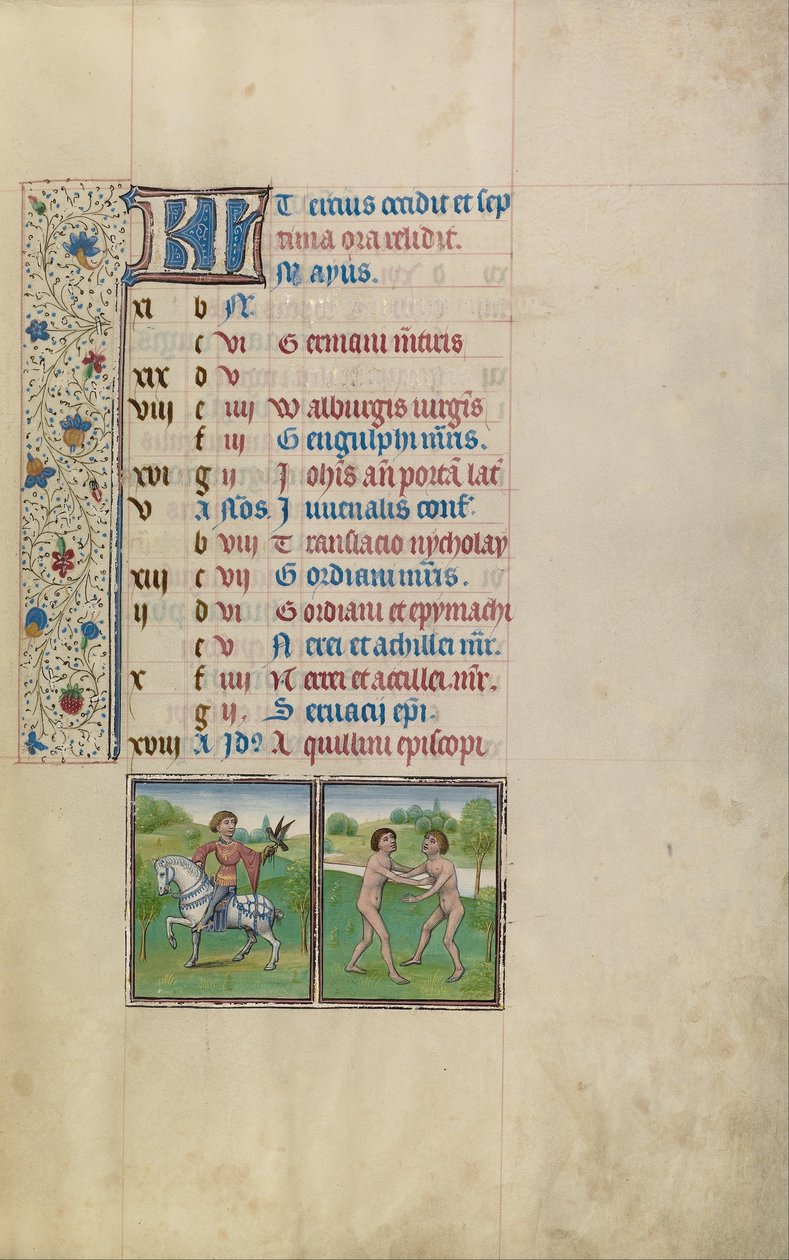 Kl Tercius occidit et sep
tima ora relidit.
Mayus.
xi b N.
c vi Germani m̄tiris
xix d v
viij e iiij Walburgis uirgīs
f iij Gengulphi mr̄is.
xvi g ij Joh̄is an̄ portā lat̄
v A No᷒s. Juuenalis conf᷒
b viij Translacio nycholay
xiij c vij Gordiani mr̄is.
ij d vi Gordiani et epymachi
e v Nerei et achillei mr̄.
x f iiij Nerei et accillei.mr̄.
g ij, Seruacij epī.
xviij A Jdꝰ Aquillini episcopi